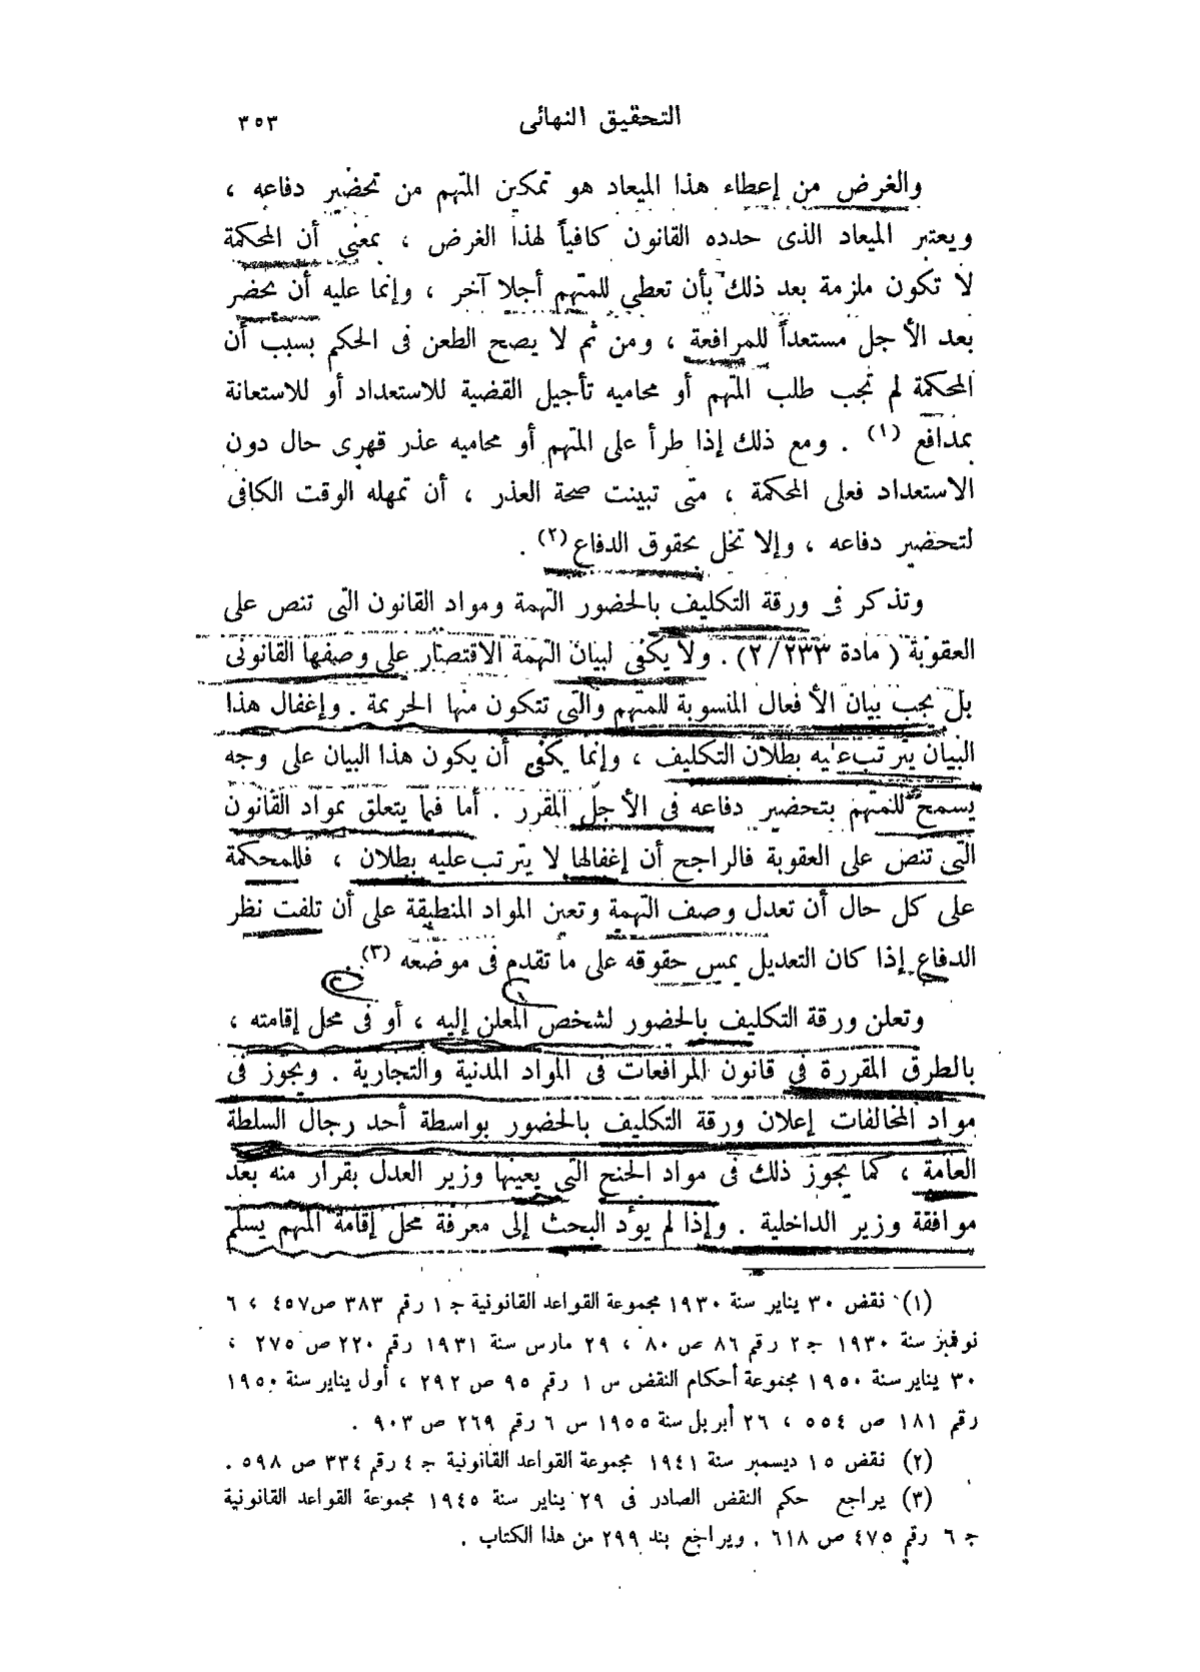 التحقيق النهائى ٣٥٣
والغرض من إعطاء هذا الميعاد هو تمكين المتهم من تحضير دفاعه ،
ويعتبر الميعاد الذى حدده القانون كافياً لهذا الغرض ، بمعنى أن المحكمة
لا تكون ملزمة بعد ذلك بأن تعطى للمتهم أجلا آخر ، وإنما عليه أن يحضر
بعد الأجل مستعداً للمرافعة ، ومن ثم لا يصح الطعن فى الحكم بسبب أن
المحكمة لم تجب طلب المتهم أو محاميه تأجيل القضية للاستعداد أو للاستعانة
بمدافع (١) . ومع ذلك إذا طرأ على المتهم أو محاميه عذر قهرى حال دون
الاستعداد فعلى المحكمة ، متى تبينت صحة العذر ، أن تمهله الوقت الكافى
لتحضير دفاعه ، وإلا تخل بحقوق الدفاع (٢) .
وتذكر فى ورقة التكليف بالحضور التهمة ومواد القانون التى تنص على
العقوبة ( مادة ٢/٢٣٣) . ولا يكفى لبيان التهمة الاقتصار على وصفها القانونى
بل يجب بيان الأفعال المنسوبة للمتهم والتى تتكون منها الجريمة . وإغفال هذا
البيان يترتب عليه بطلان التكليف ، وإنما يكفى أن يكون هذا البيان على وجه
يسمح للمتهم بتحضير دفاعه فى الأجل المقرر . أما فيما يتعلق بمواد القانون
التى تنص على العقوبة فالراجح أن إغفالها لا يترتب عليه بطلان ، فللمحكمة
على كل حال أن تعدل وصف التهمة وتعين المواد المنطبقة على أن تلفت نظر
الدفاع إذا كان التعديل يمس حقوقه على ما تقدم فى موضعه (٣) .
وتعلن ورقة التكليف بالحضور لشخص المعلن إليه ، أو فى محل إقامته ،
بالطرق المقررة فى قانون المرافعات فى المواد المدنية والتجارية . ويجوز فى
مواد المخالفات إعلان ورقة التكليف بالحضور بواسطة أحد رجال السلطة
العامة ، كما يجوز ذلك فى مواد الجنح التى يعينها وزير العدل بقرار منه بعد
موافقة وزير الداخلية . وإذا لم يؤد البحث إلى معرفة محل إقامة المتهم يسلم
(١) نقض ٣٠ يناير سنة ١٩٣٠ مجموعة القواعد القانونية ج ١ رقم ٣٨٣ ص ٤٥٧ ، ٦
نوفمبر سنة ١٩٣٠ ج ٢ رقم ٨٦ ص ٨٠ ، ٢٩ مارس سنة ١٩٣١ رقم ٢٢٠ ص ٢٧٥ ،
٣٠ يناير سنة ١٩٥٠ مجموعة أحكام النقض س ١ رقم ٩٥ ص ٢٩٢ ، أول يناير سنة ١٩٥٠
رقم ١٨١ ص ٥٥٤ ، ٢٦ أبريل سنة ١٩٥٥ س ٦ رقم ٢٦٩ ص ٩٠٣ .
(٢) نقض ١٥ ديسمبر سنة ١٩٤١ مجموعة القواعد القانونية ج ٤ رقم ٣٣٤ ص ٥٩٨ .
(٣) يراجع حكم النقض الصادر فى ٢٩ يناير سنة ١٩٤٥ مجموعة القواعد القانونية
ج ٦ رقم ٤٧٥ ص ٦١٨ . ويراجع بند ٢٩٩ من هذا الكتاب .